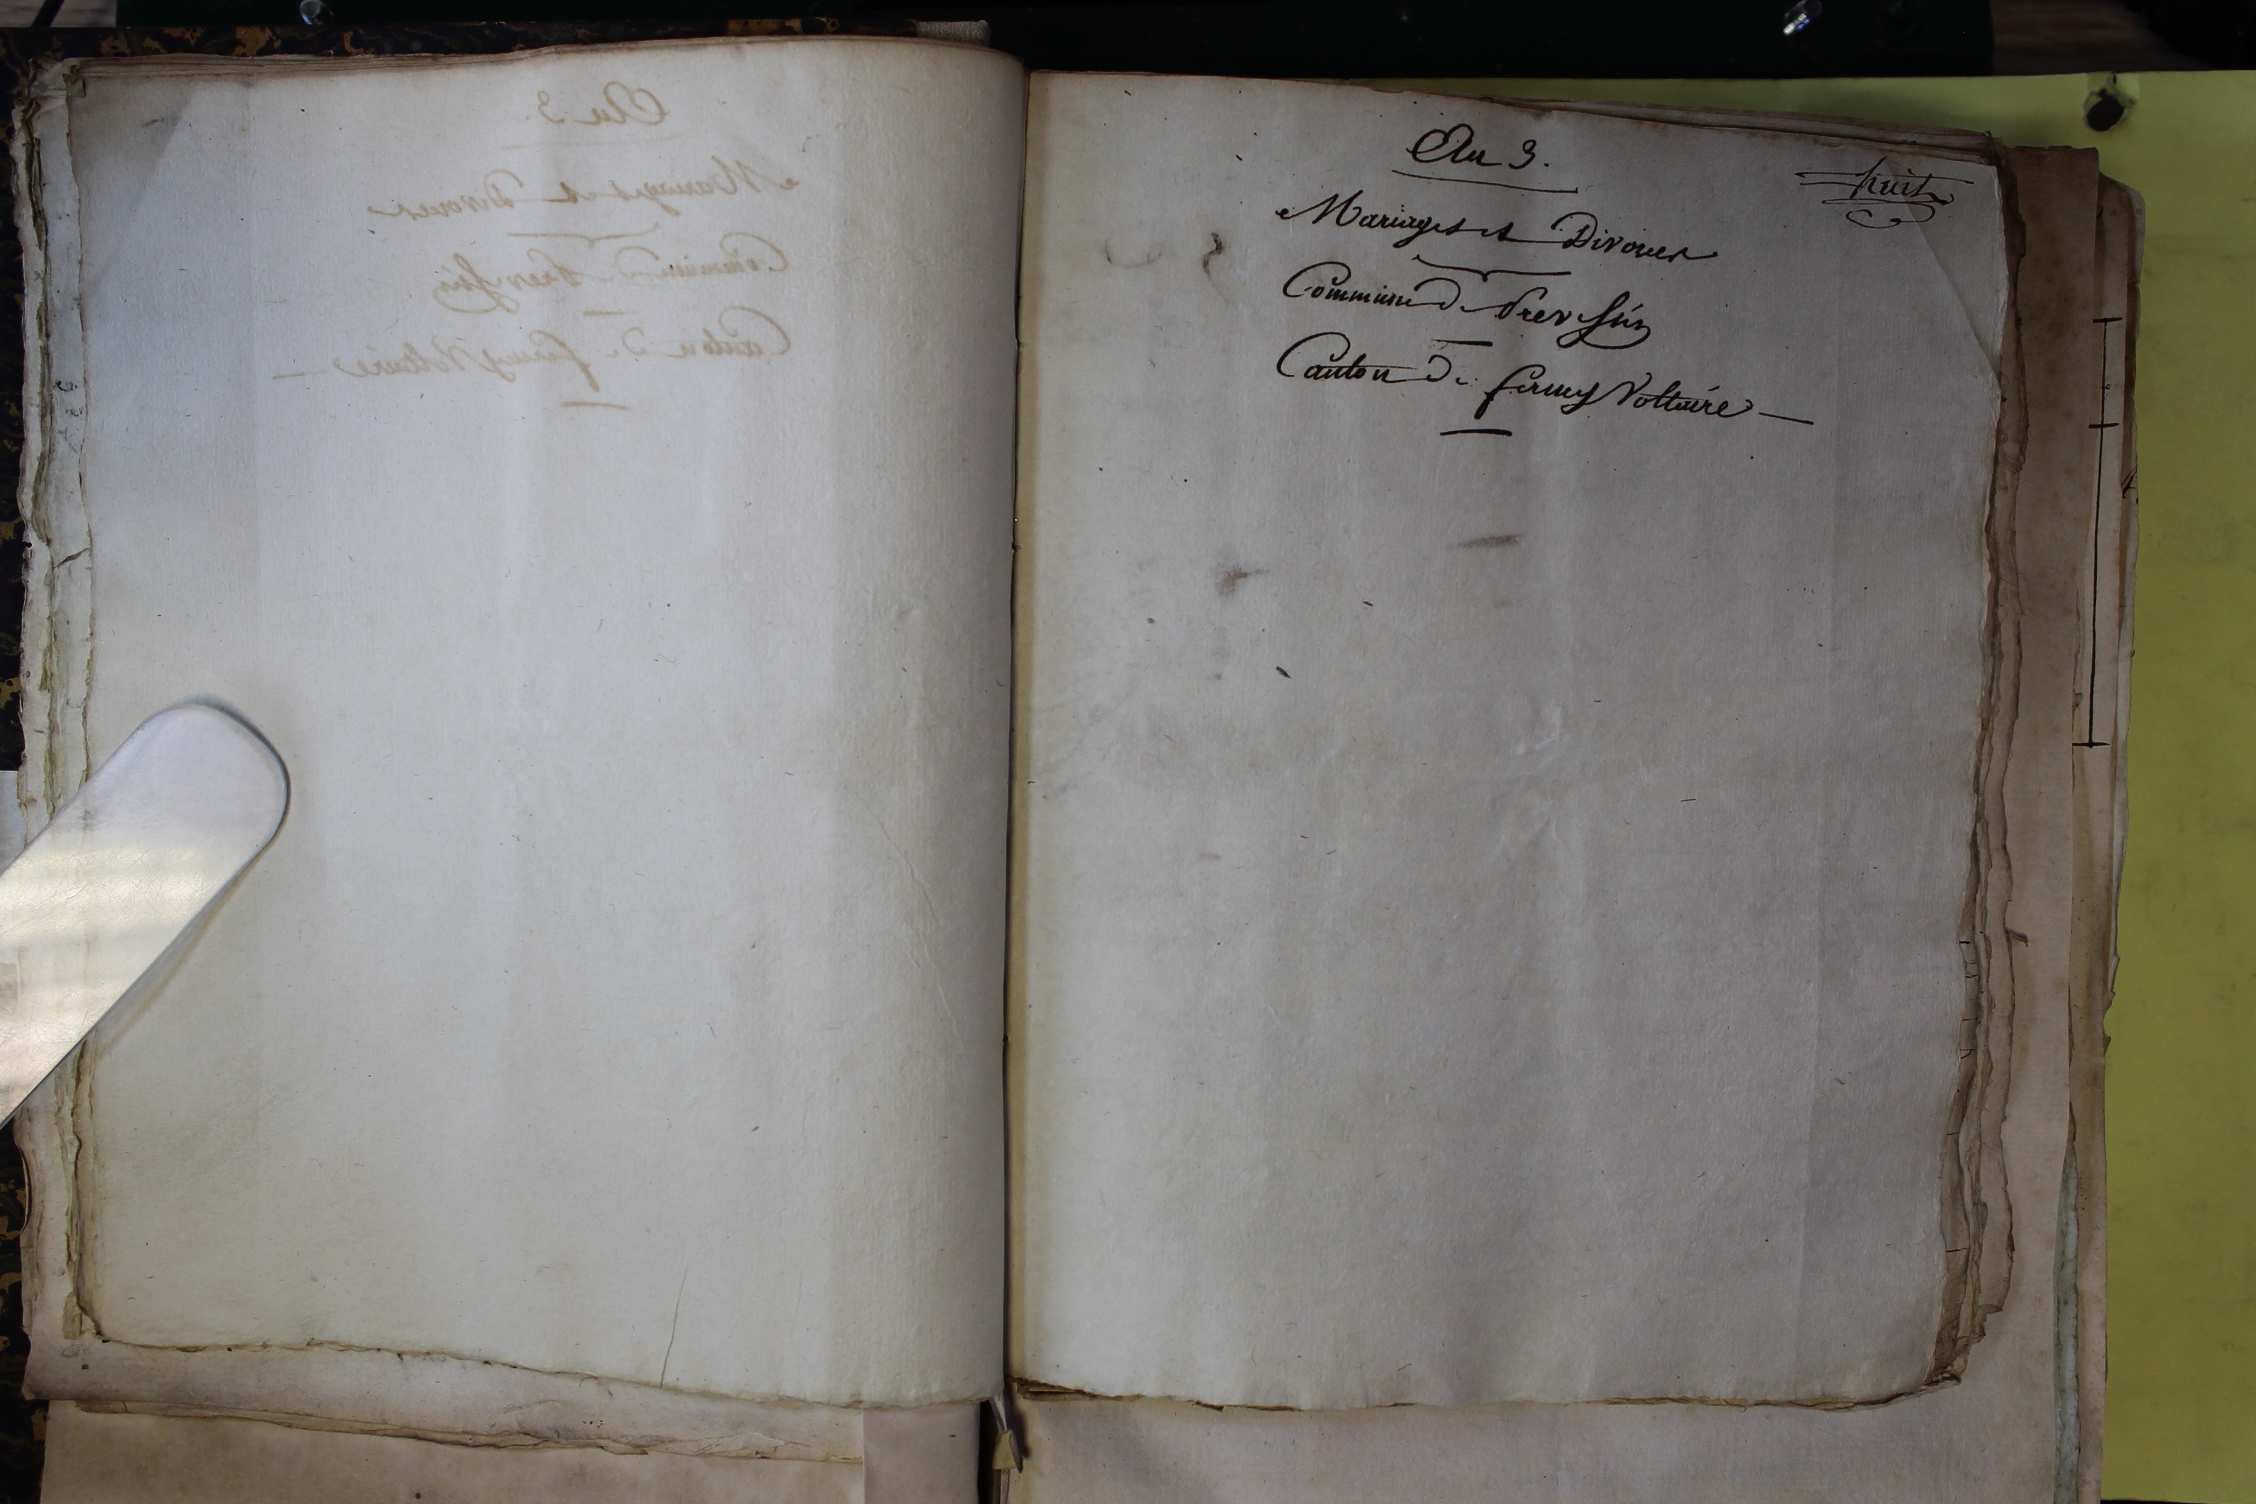 An 3.
huit
Mariages et Divorces
Commune de Prevessin
Canton de ferney Voltaire